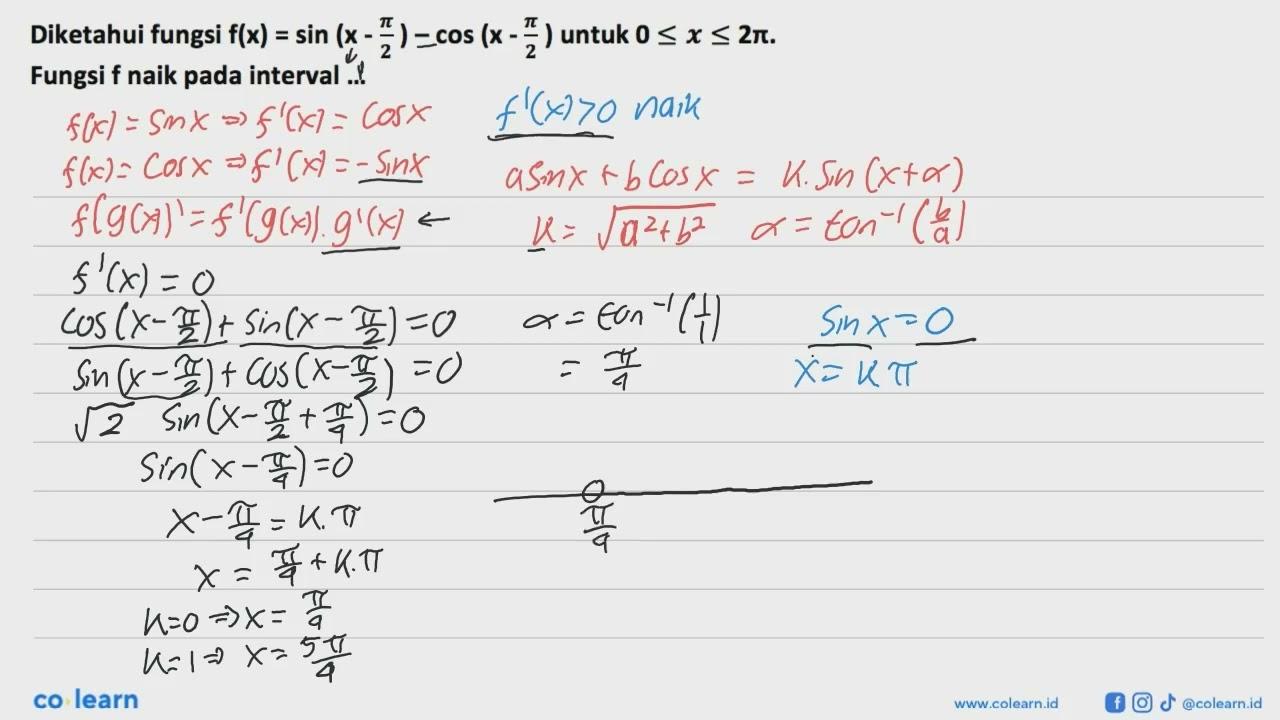 Diketahui fungsi f(x) = sin (x - π/2) – cos (x - π/2) untuk 0 ≤ x ≤ 2π.
Fungsi f naik pada interval ...!
f(x) = sin x ⇒ f'(x) = cos x
f(x) = cos x ⇒ f'(x) = - sin x
f(g(x))' = f'(g(x)). g'(x) ←
f'(x) > 0 naik
a sin x + b cos x = k. sin (x + α)
k = √(a² + b²) α = tan⁻¹ (b/a)
f'(x) = 0
cos(x - π/2) + sin(x - π/2) = 0
sin(x - π/2) + cos(x - π/2) = 0
√2 sin(x - π/2 + π/4) = 0
sin(x - π/4) = 0
x - π/4 = k.π
x = π/4 + k.π
k=0 ⇒ x = π/4
k=1 ⇒ x = 5π/4
α = tan⁻¹ (1/1)
= π/4
sin x = 0
x = k π
π/4
co learn
www.colearn.id
@colearn.id